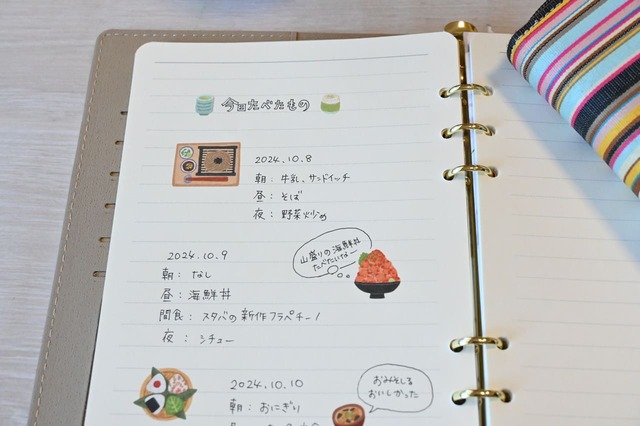 今日たべたもの
2024.10.8
朝：牛乳、サンドイッチ
昼：そば
夜：野菜炒め
2024.10.9
朝：なし
昼：海鮮丼
間食：スタバの新作フラペチーノ
夜：シチュー
山盛りの海鮮丼
たべたいなー
2024.10.10
朝：おにぎり
おみそしる
おいしかった